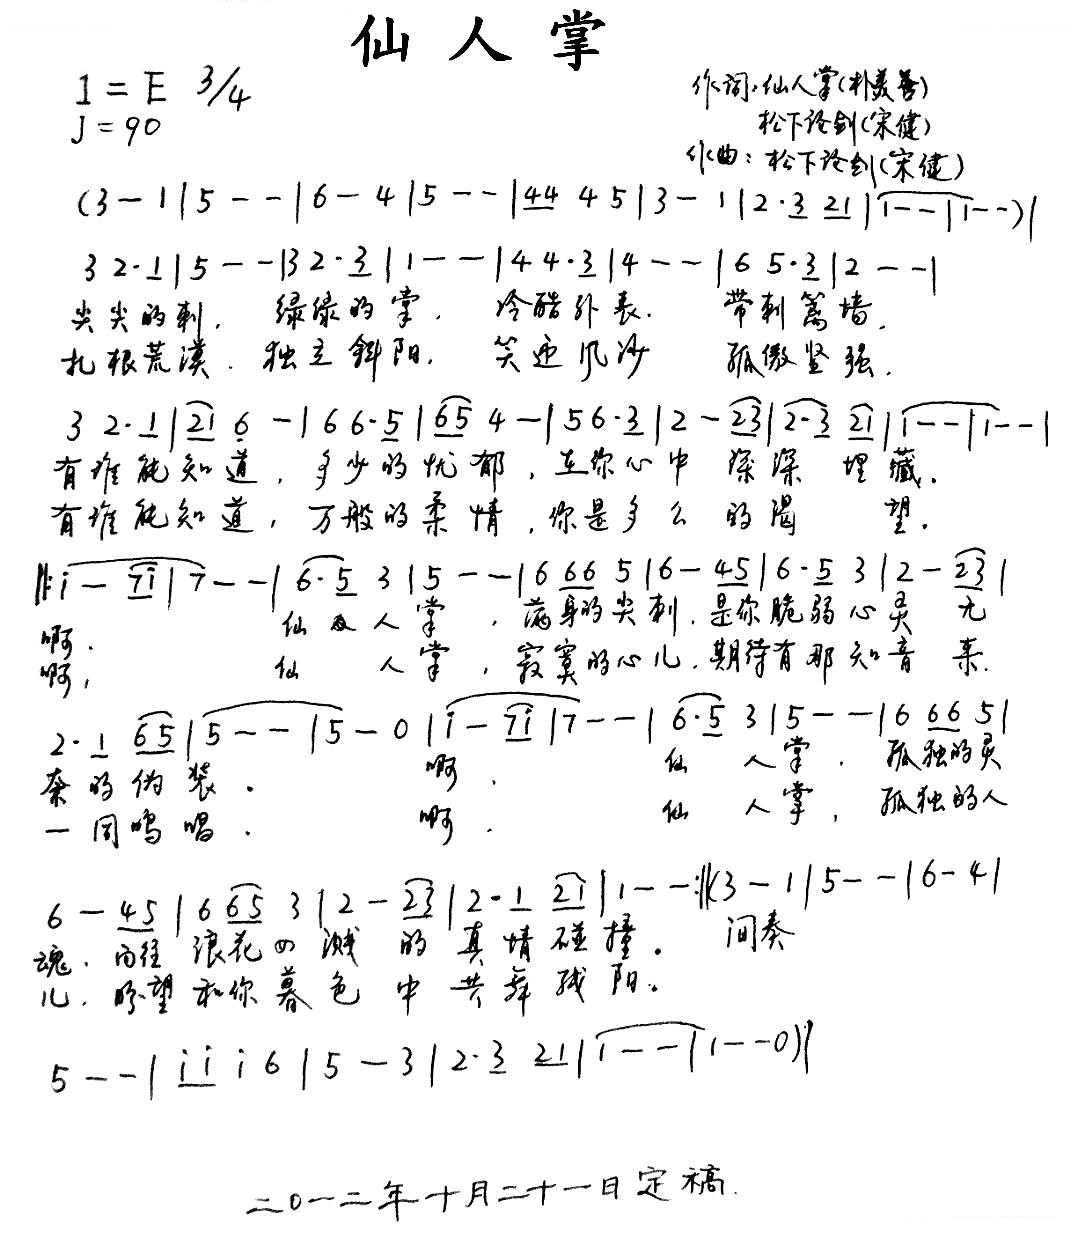 仙人掌
1=E 3/4
J=90
作词:仙人掌(朴美善)
松下论剑(宋健)
作曲:松下论剑(宋健)
(3 - 1 | 5 - - | 6 - 4 | 5 - - | 44 4 5 | 3 - 1 | 2·3 21 | 1 - - | 1 - -) |
3 2·1 | 5 - - | 3 2·3 | 1 - - | 4 4·3 | 4 - - | 6 5·3 | 2 - - |
尖尖的刺, 绿绿的掌, 冷酷外表. 带刺篱墙,
扎根荒漠. 独立斜阳. 笑迎风沙 孤傲坚强.
3 2·1 | 21 6 - | 6 6·5 | 65 4 - | 5 6·3 | 2 - 23 | 2·3 21 | 1 - - | 1 - - |
有谁能知道, 多少的忧郁, 在你心中 深深 埋藏.
有谁能知道, 万般的柔情, 你是多么 的渴 望.
‖: i - 7i | 7 - - | 6·5 3 | 5 - - | 6 66 5 | 6 - 45 | 6·5 3 | 2 - 23 |
啊. 仙 人掌, 满身的尖刺, 是你脆弱心灵 无
啊, 仙 人掌, 寂寞的心儿, 期待有那知音 来.
2·1 65 | 5 - - | 5 - 0 | i - 7i | 7 - - | 6·5 3 | 5 - - | 6 66 5 |
奈的伪装. 啊. 仙 人掌. 孤独的灵
一同鸣唱. 啊. 仙 人掌, 孤独的人
6 - 45 | 6 65 3 | 2 - 23 | 2·1 21 | 1 - - :‖ (3 - 1 | 5 - - | 6 - 4 |
魂. 向往 浪花四溅 的真情碰撞. 间奏
儿. 盼望和你暮色中共舞残阳.
5 - - | i i i 6 | 5 - 3 | 2·3 21 | 1 - - | 1 - - 0) |
二〇一二年十月二十一日定稿.